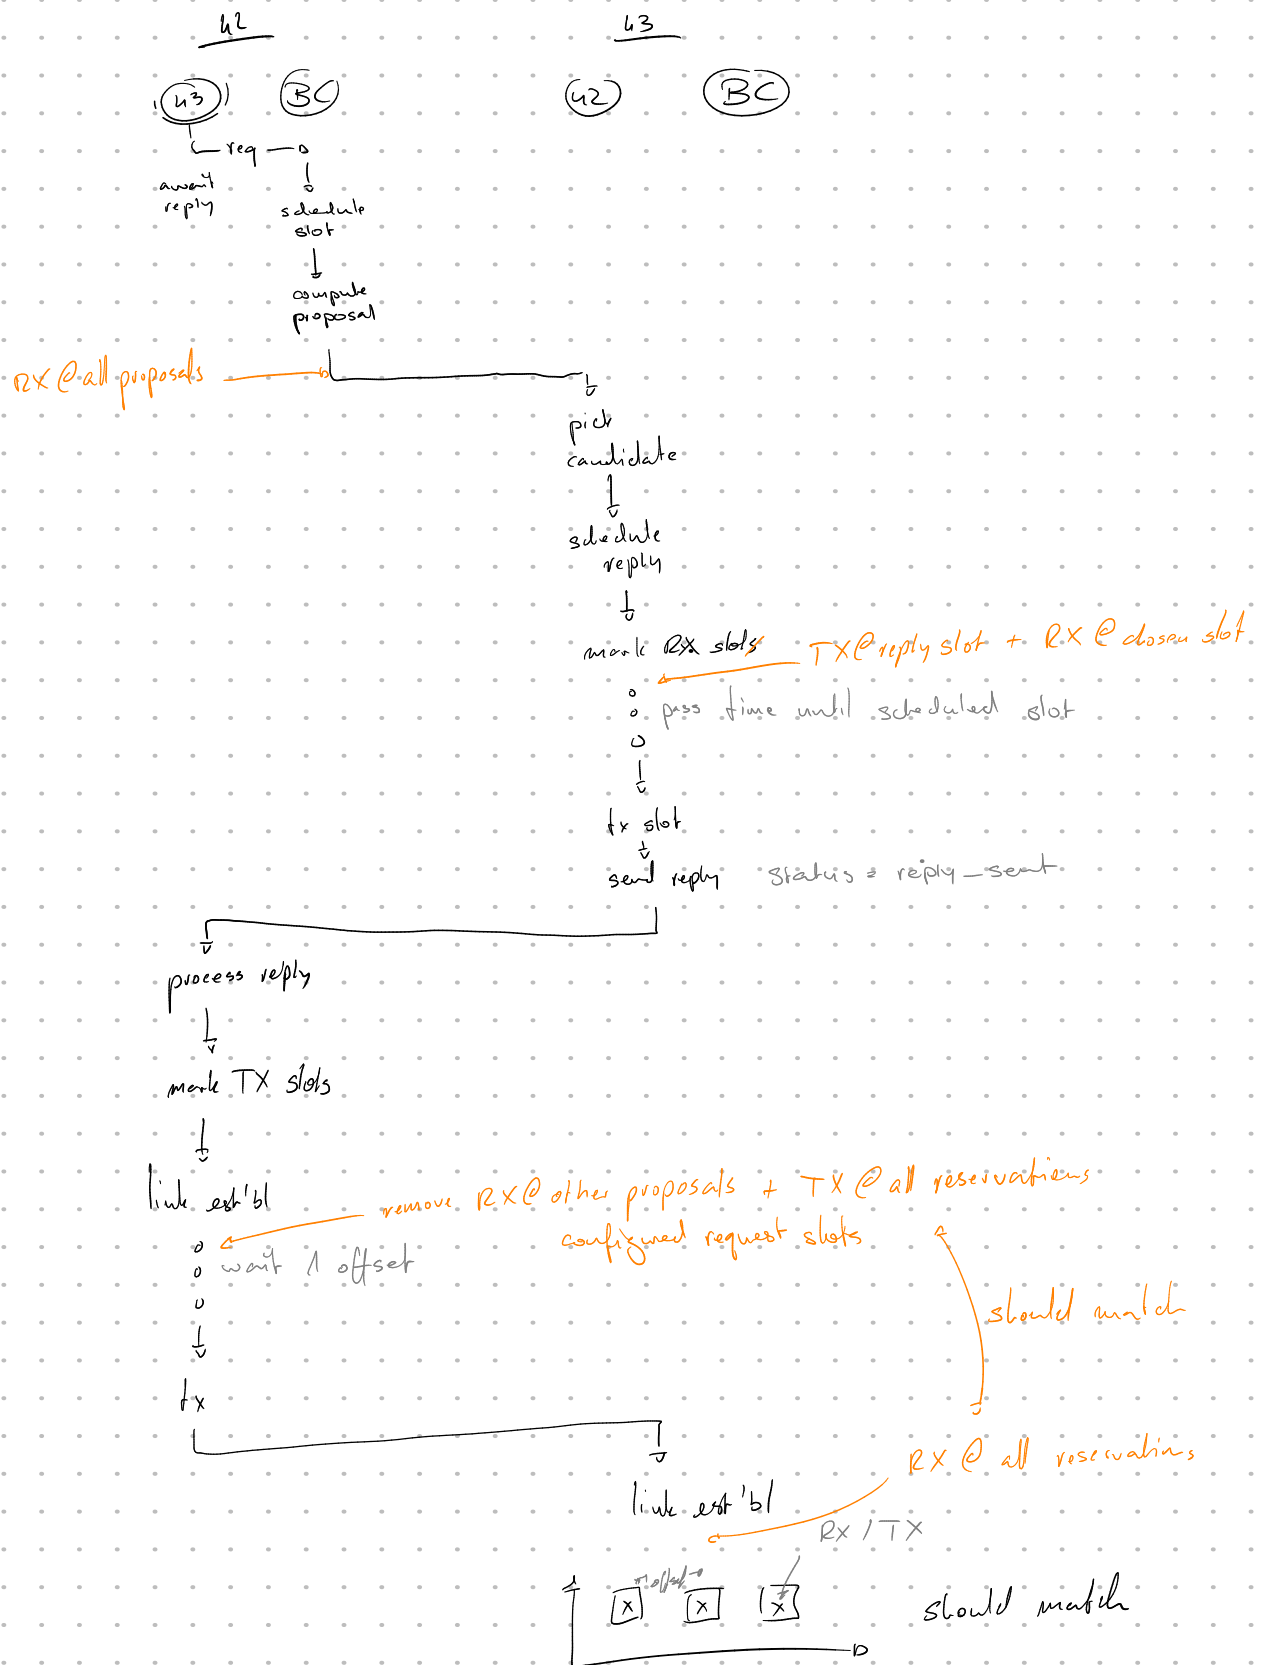 42
43
43
BC
42
BC
req
await
reply
schedule
slot
compute
proposal
RX @ all proposals
pick
candidate
schedule
reply
mark RX slots
TX @ reply slot + RX @ chosen slot
pass time until scheduled slot
tx slot
send reply
status = reply_sent
process reply
mark TX slots
link est'bl
remove RX @ other proposals + TX @ all reservations
configured request slots
wait 1 offset
should match
tx
RX @ all reservations
link est'bl
RX / TX
offset
X
X
X
should match